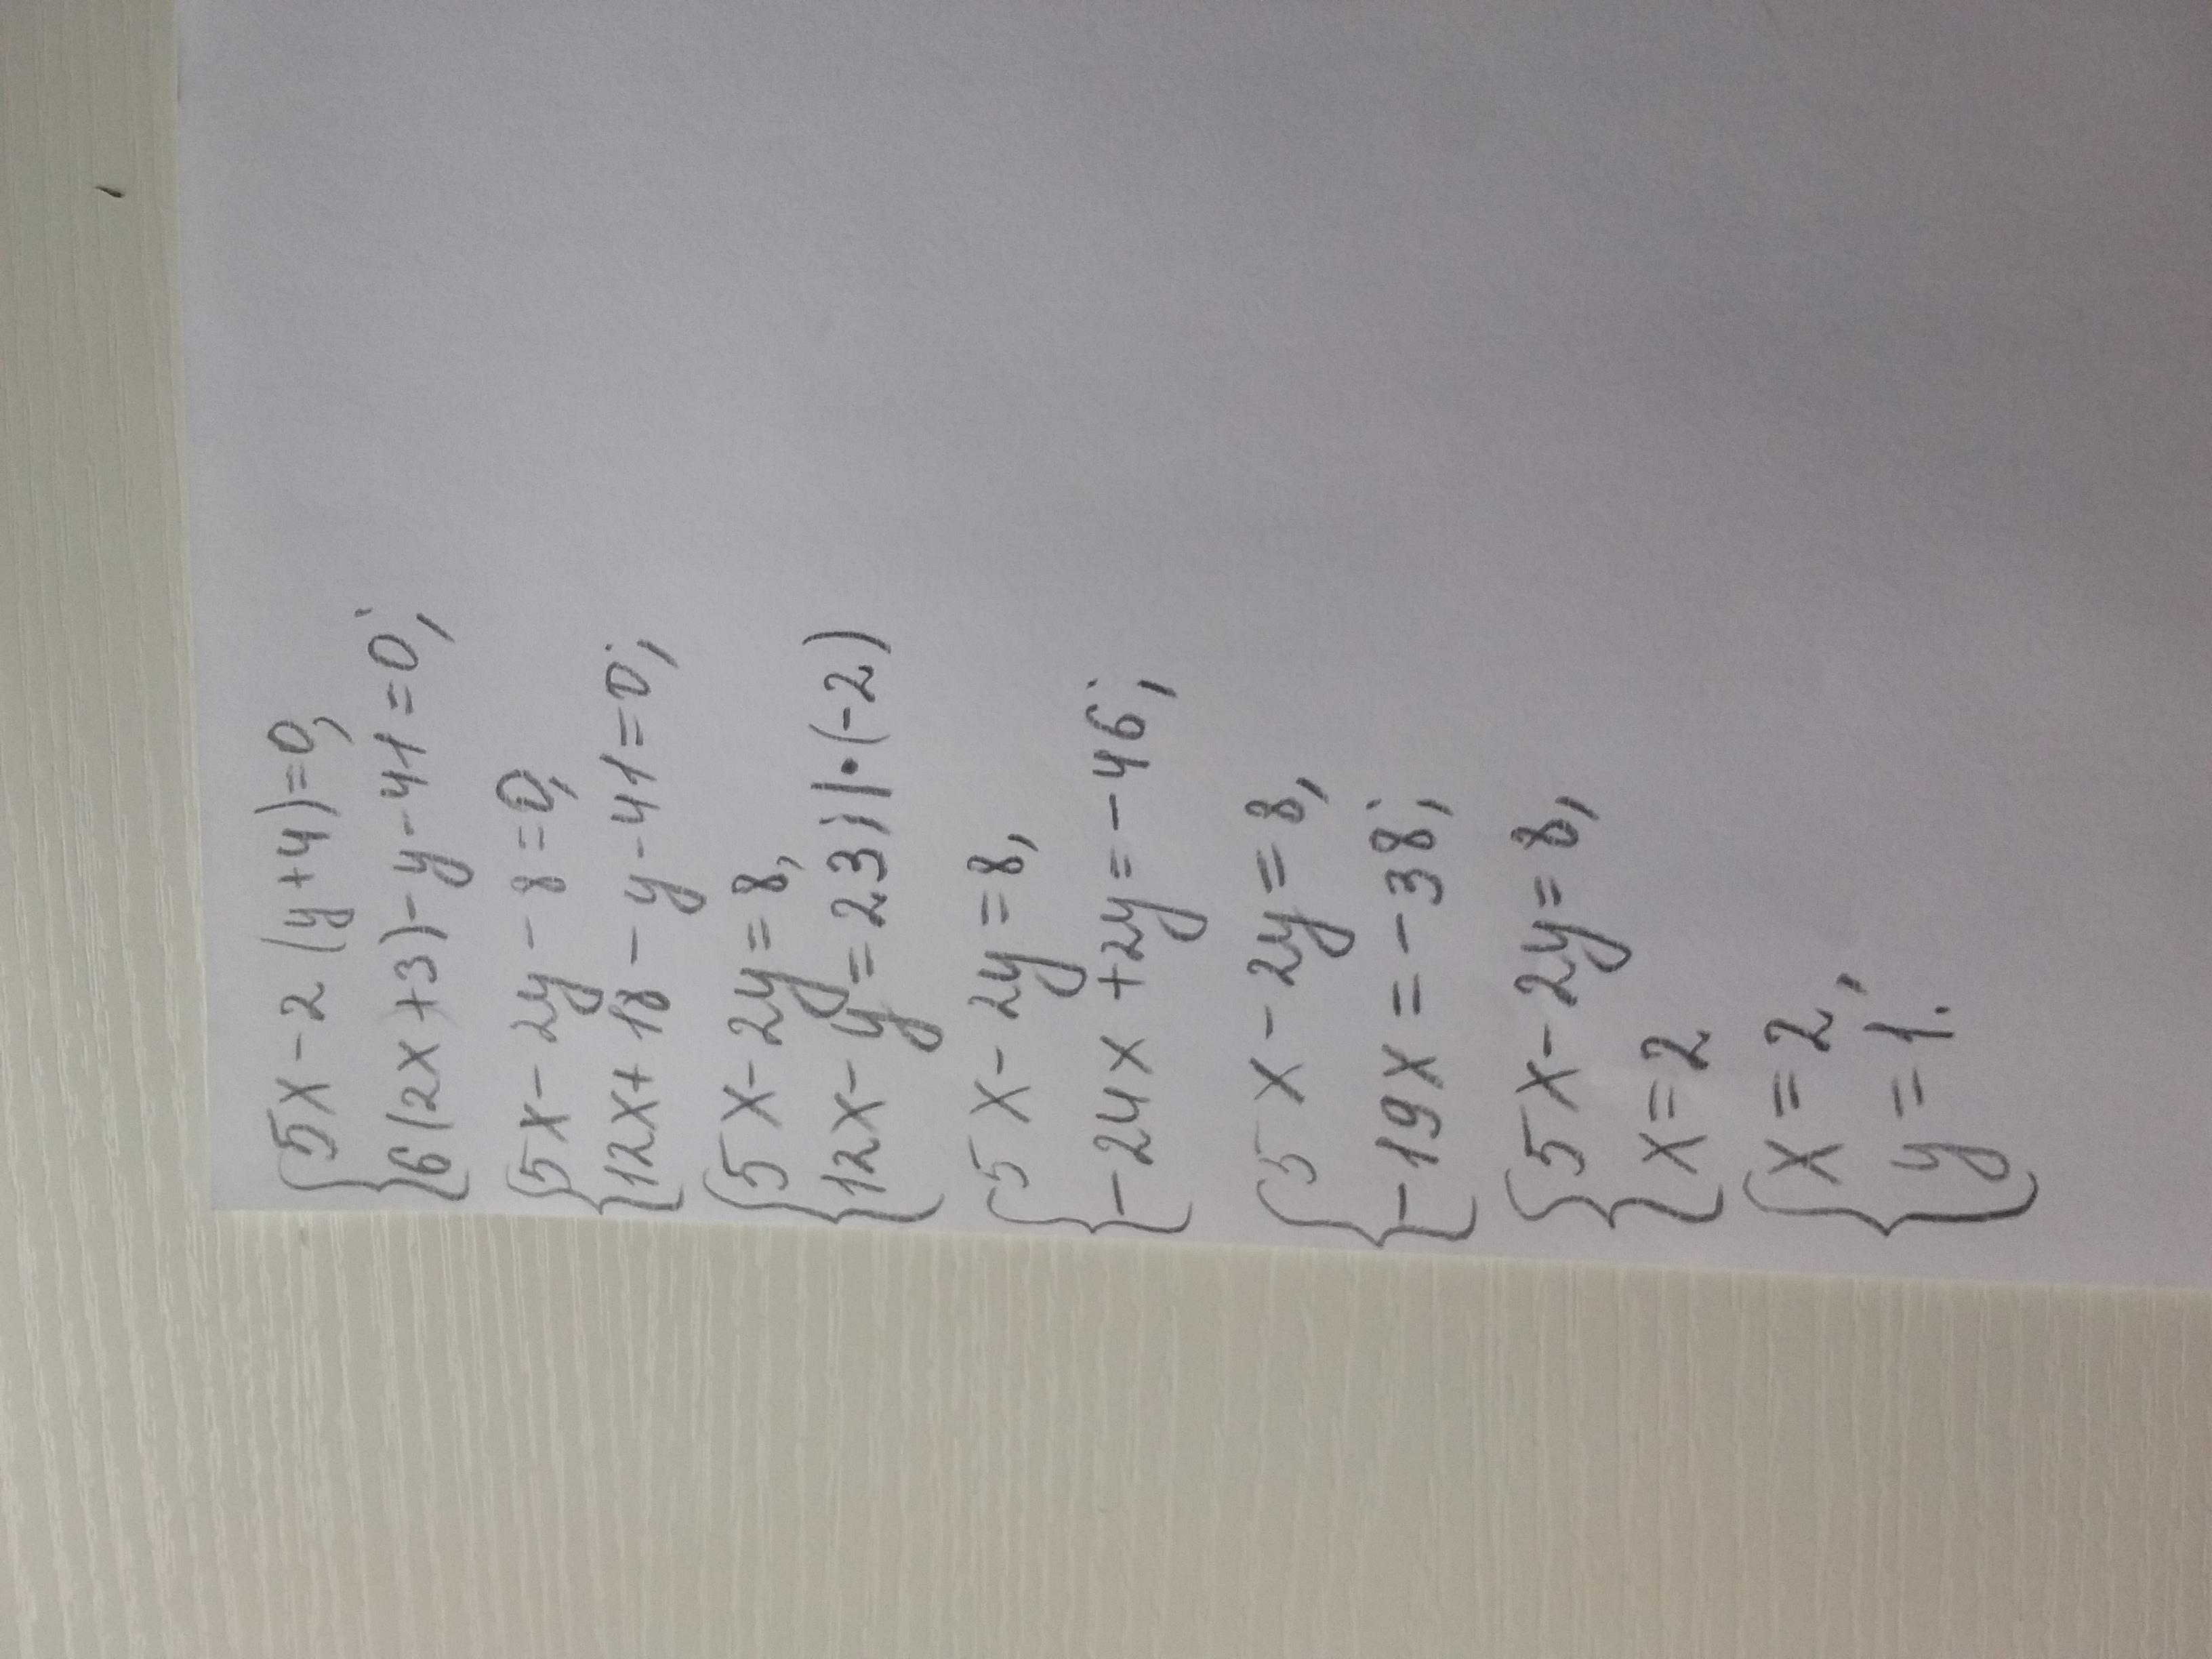 { 5x - 2(y+4)=0,
6(2x+3)-y-41=0;
{ 5x-2y-8=0,
12x+18-y-41=0;
{ 5x-2y=8,
12x-y=23; |·(-2)
{ 5x-2y=8,
-24x+2y=-46;
{ 5x-2y=8,
-19x=-38;
{ 5x-2y=8,
x=2
{ x=2,
y=1.